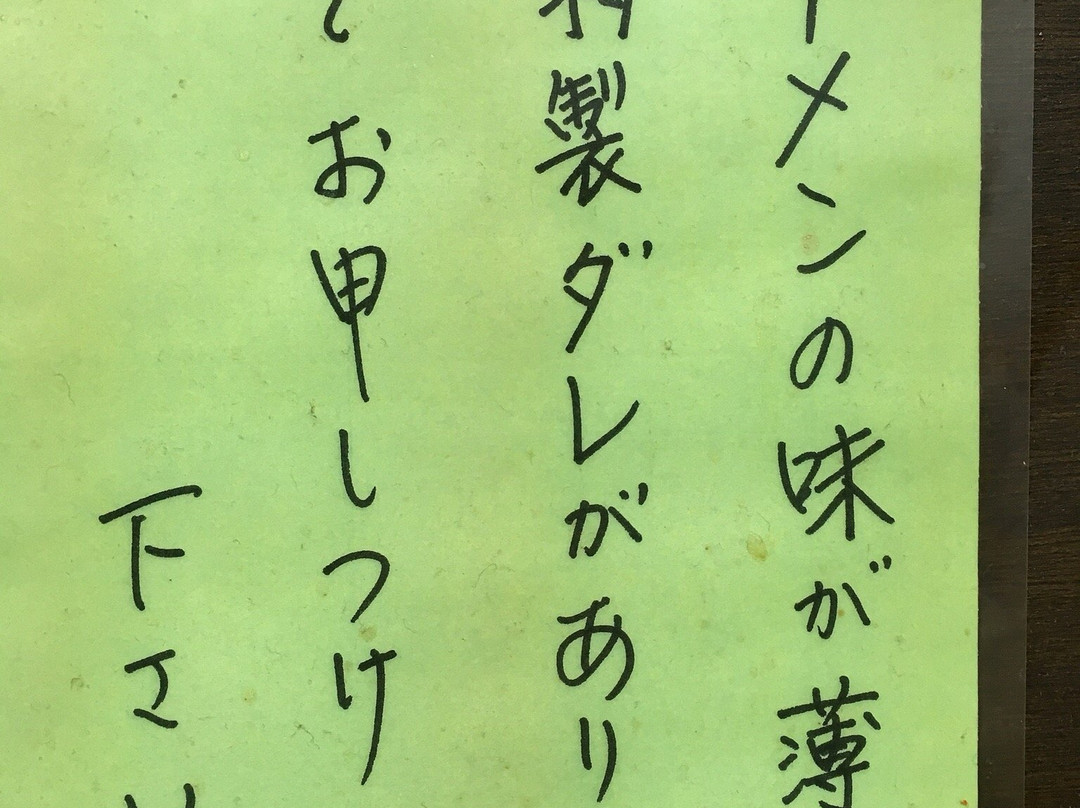 ーメンの味が薄
特製ダレがあり
てお申しつけ
下さい